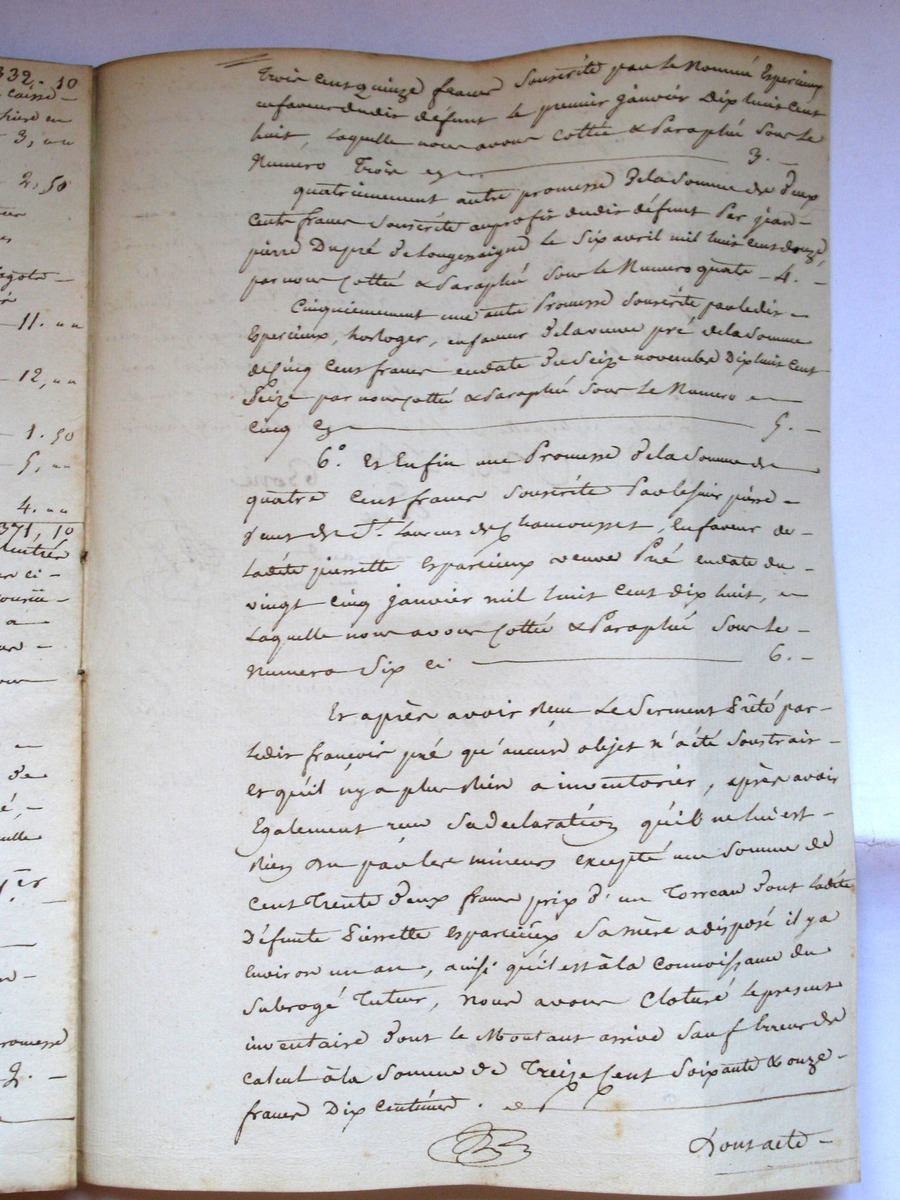 332. 10
caisse –
3, „ „
2, 50
11. „ „
12, „ „
1. 50
5, „ „
4. „ „
371, 10
promesse
2. –
trois cent quinze francs souscrite par le nommé Esparcieux
en faveur dudit défunt le premier janvier dix huit cent
huit, laquelle nous avons cottée & paraphé sous le
numero trois cy 3. –
quatriemement autre promesse de la somme de deux
cents francs souscrite au profit dudit défunt par jean –
pierre Dupré de Longessaigne le six avril mil huit cent douze,
par nous cottée & paraphé sous le numero quatre – 4. –
Cinquiemement une autre promesse souscrite par ledit –
Esparcieux, horloger, en faveur de la veuve pré de la somme
de cinq cent francs en date du seize novembre dix huit cent
seize par nous cottée & paraphé sous le numero –
cinq cy 5. –
6.° Et enfin une promesse de la somme de
quatre cent francs souscrite par le sieur pierre –
de St. Laurent de Chamousset, en faveur de –
ladite pierrette Esparcieux veuve Pré en date du –
vingt cinq janvier mil huit cent dix huit, –
laquelle nous avons cottée & paraphé sous le –
numero six ci 6. –
Et après avoir reçu le serment prêté par –
ledit françois pré qu'aucun objet n'a été soustrait –
et qu'il n'y a plus rien a inventorier, après avoir
Egalement reçu sa declaration qu'il ne lui est –
rien du par les mineurs excepté une somme de
cent trente deux francs prix d'un Torreau dont ladite
défunte Pierrette Esparcieux sa mère a disposé il y a
Environ un an, ainsi qu'il est à la connoissance du
subrogé Tuteur, nous avons cloturé le present
inventaire dont le montant arrive sauf Erreur de
calcul à la somme de Treize cent soixante & onze –
francs dix centimes.
Dont acte –